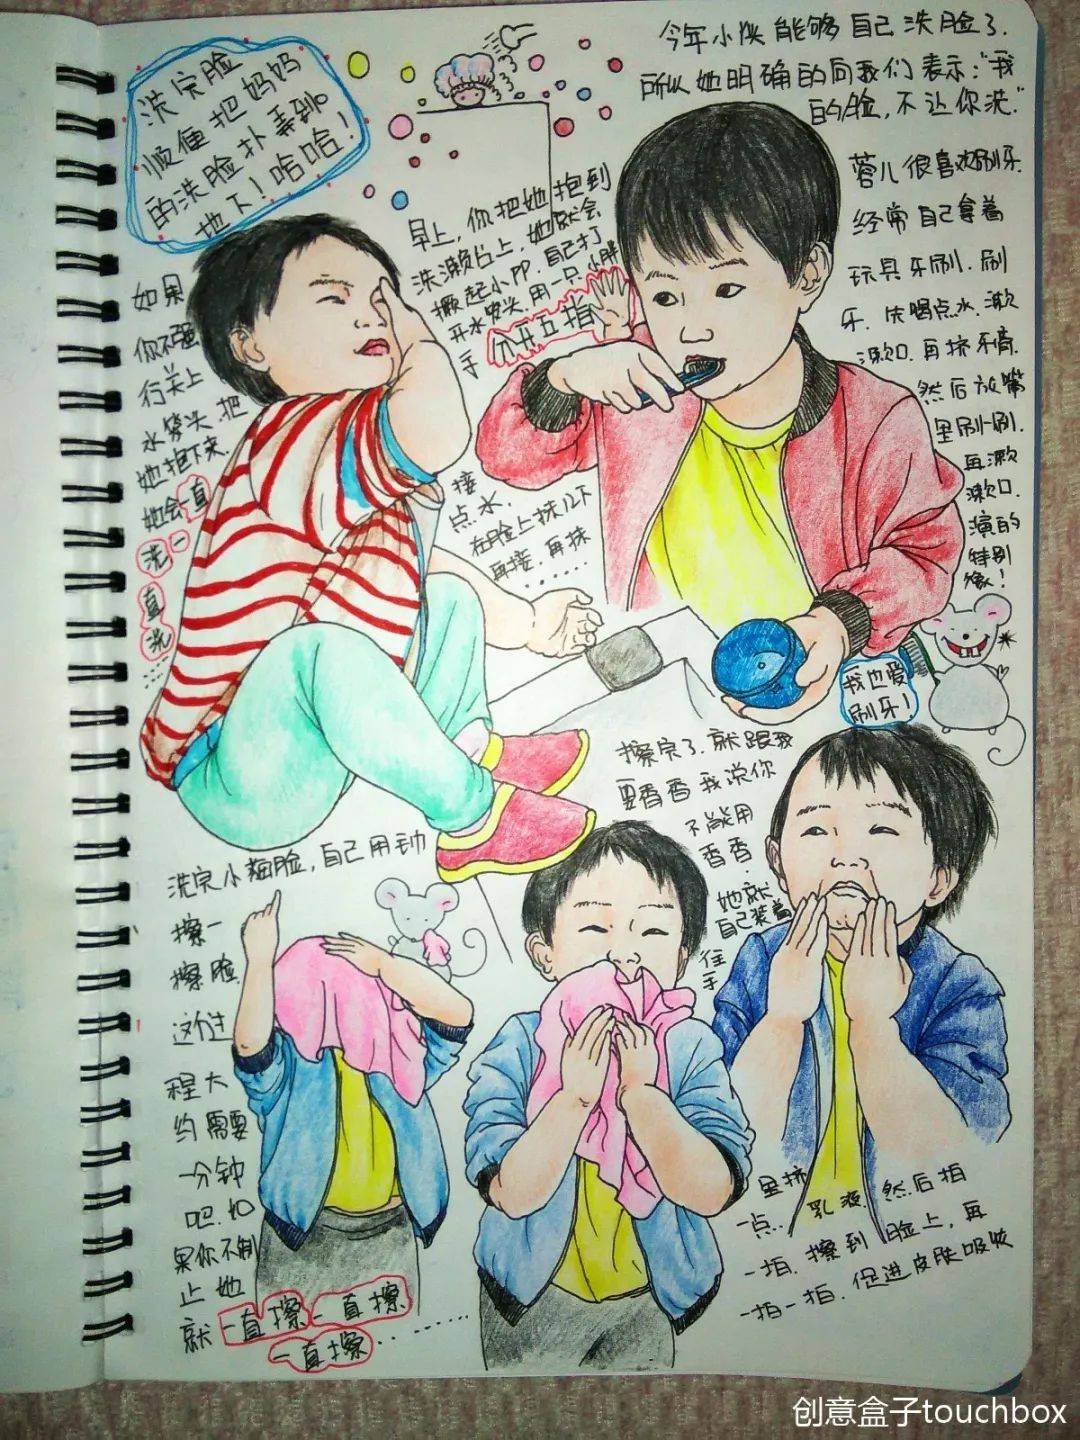 今年小侠能够自己洗脸了.
所以她明确的向我们表示:"我
的脸,不让你洗."
洗完脸
顺便把妈妈
的洗脸扑弄到
地下!哈哈!
早上,你把她抱到
洗漱台上,她就会
撅起小PP.自己打
开水笼头,用一只小胖
手
分开五指
接
点水.
在脸上抹几下
再接 再抹
......
如果
你不强
行关上
水笼头,把
她抱下来.
她会一直
洗一
直
洗
......
蓉儿很喜欢刷牙.
经常自己拿着
玩具牙刷.刷
牙.先喝点水.漱
漱口.再挤牙膏.
然后放嘴
里刷一刷.
再漱
漱口.
演的
特别
像!
我也爱
刷牙!
洗完小脸,自己用毛巾
擦一
擦脸.
这个过
程大
约需要
一分钟
吧.如
果你不制
止她
就一直擦一直擦
一直擦......
擦完了.就跟我
要香香我说你
不能用
香香.
她就
自己装着
往
手
里挤
一点..乳液.然后拍
一拍.擦到脸上,再
一拍一拍.促进皮肤吸收
创意盒子touchbox